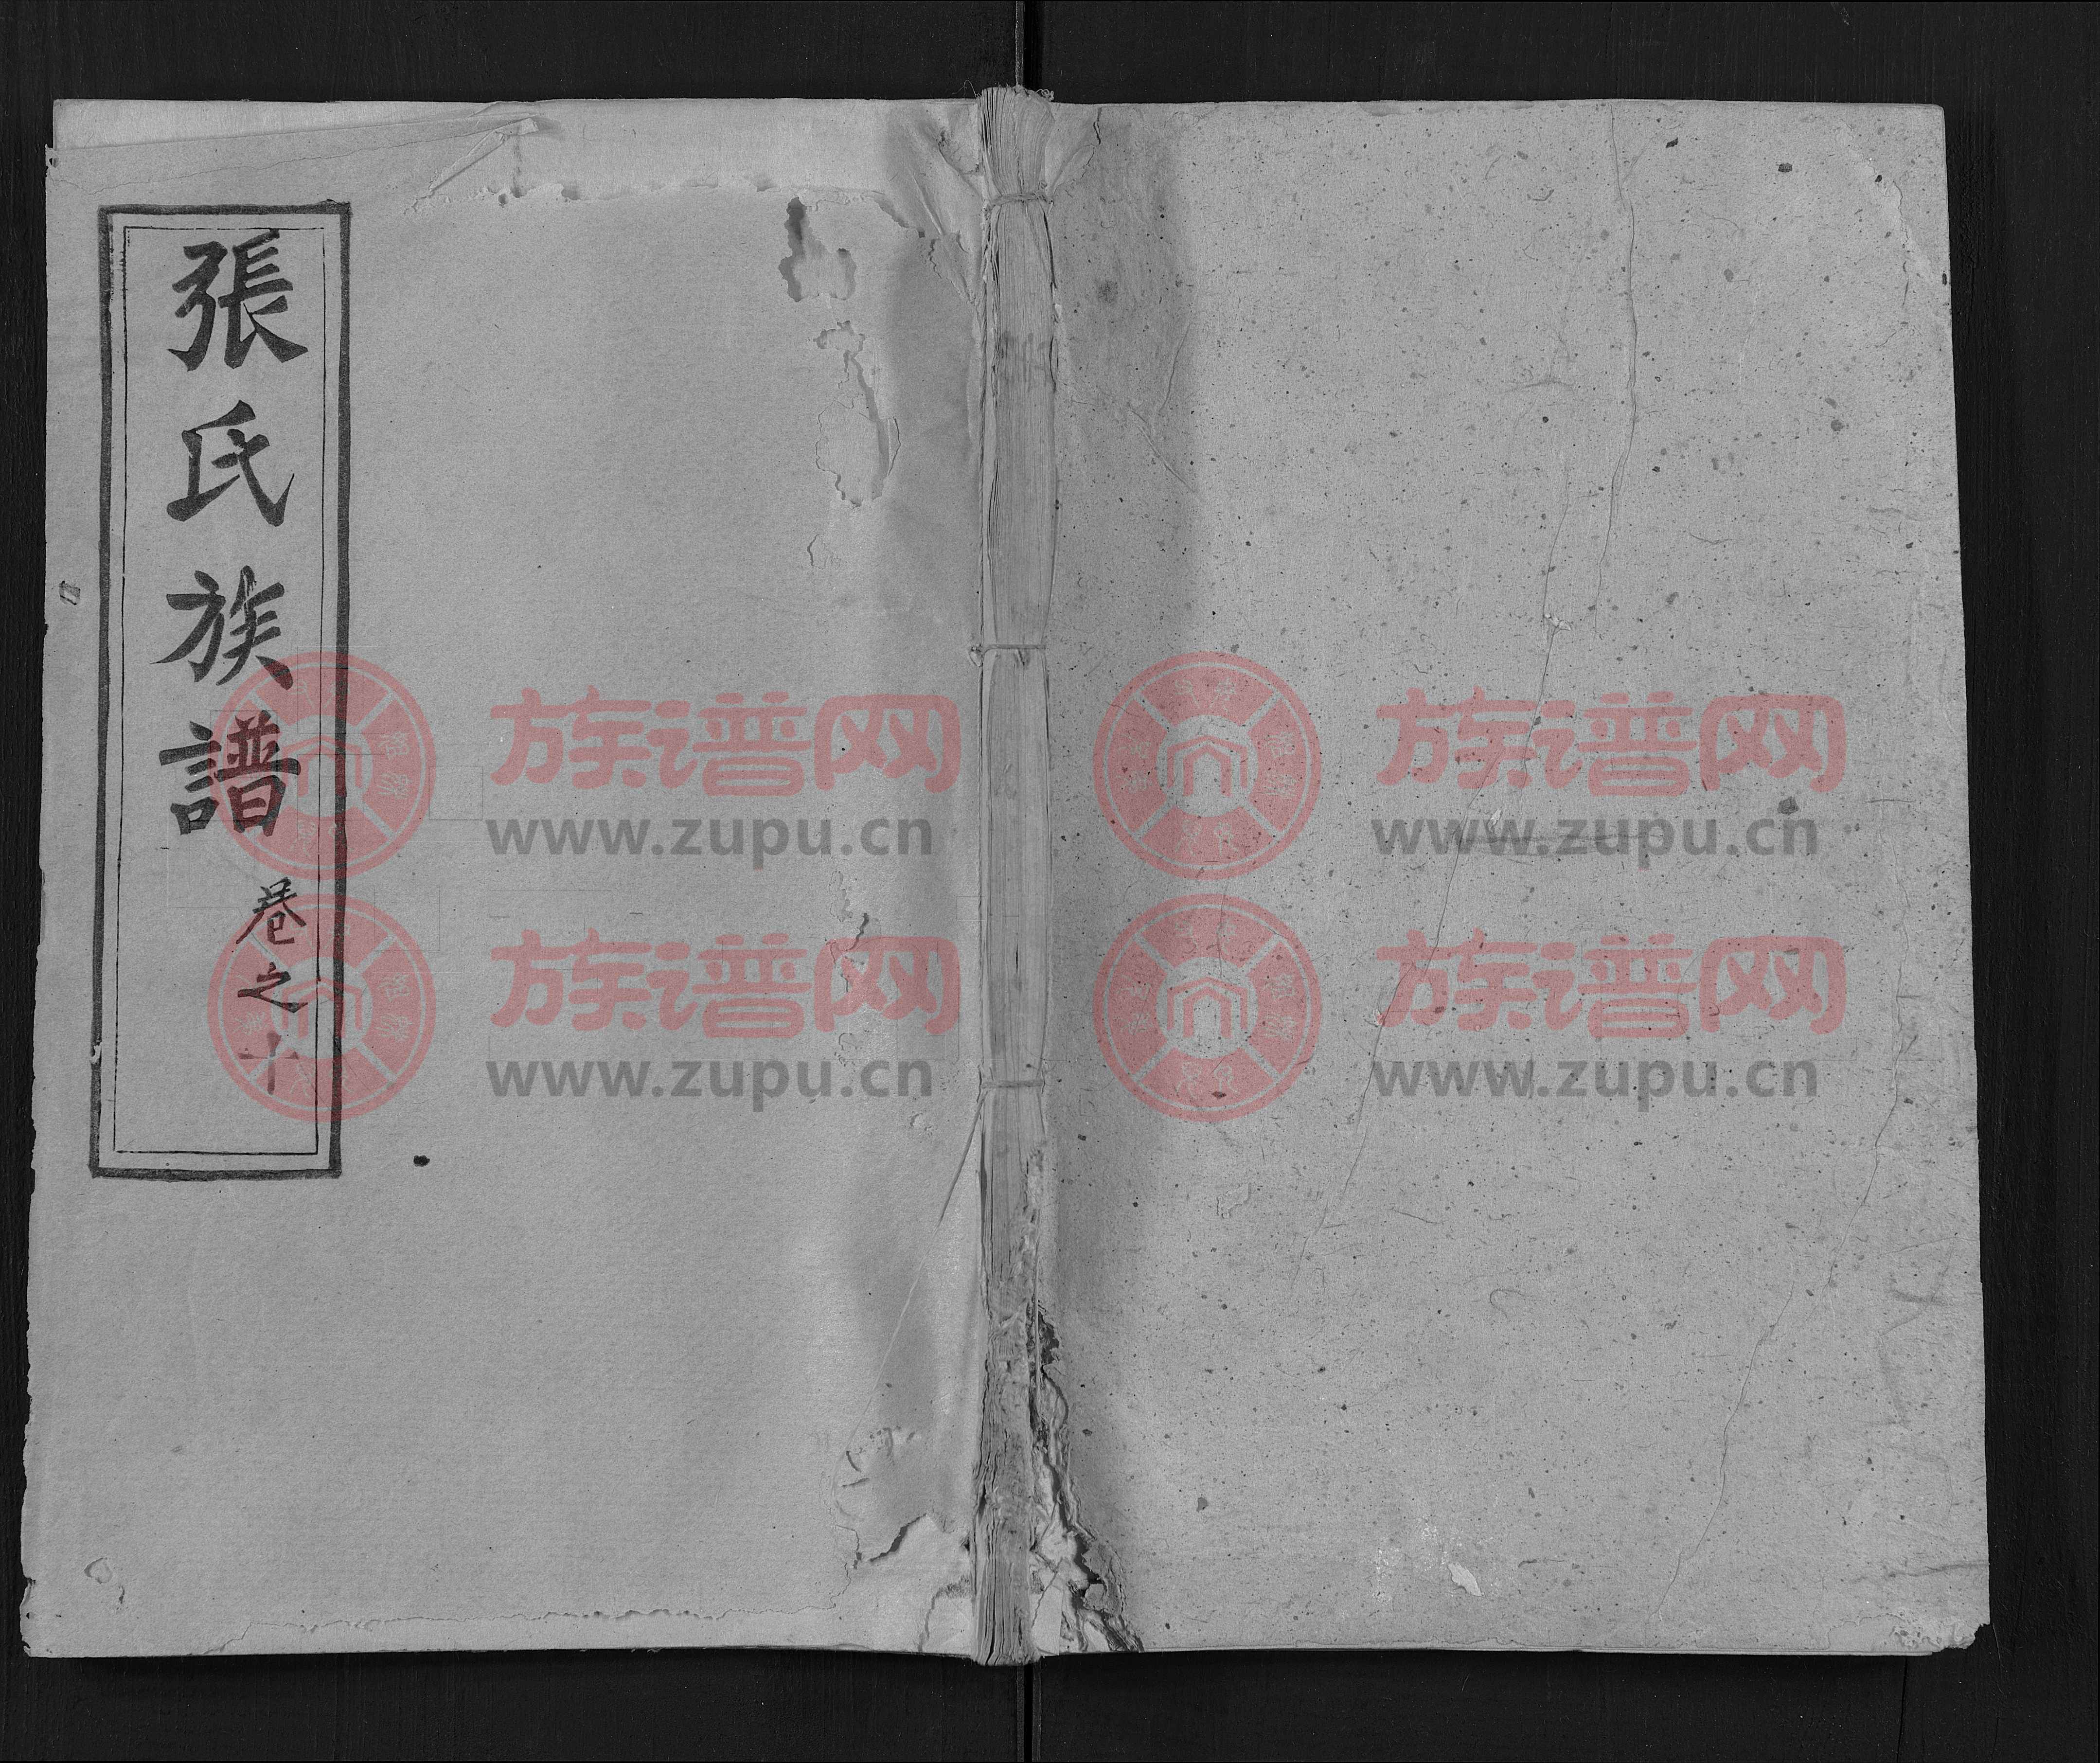 張氏族譜
卷之十
族谱网
www.zupu.cn
族谱网
www.zupu.cn
族谱网
www.zupu.cn
族谱网
www.zupu.cn